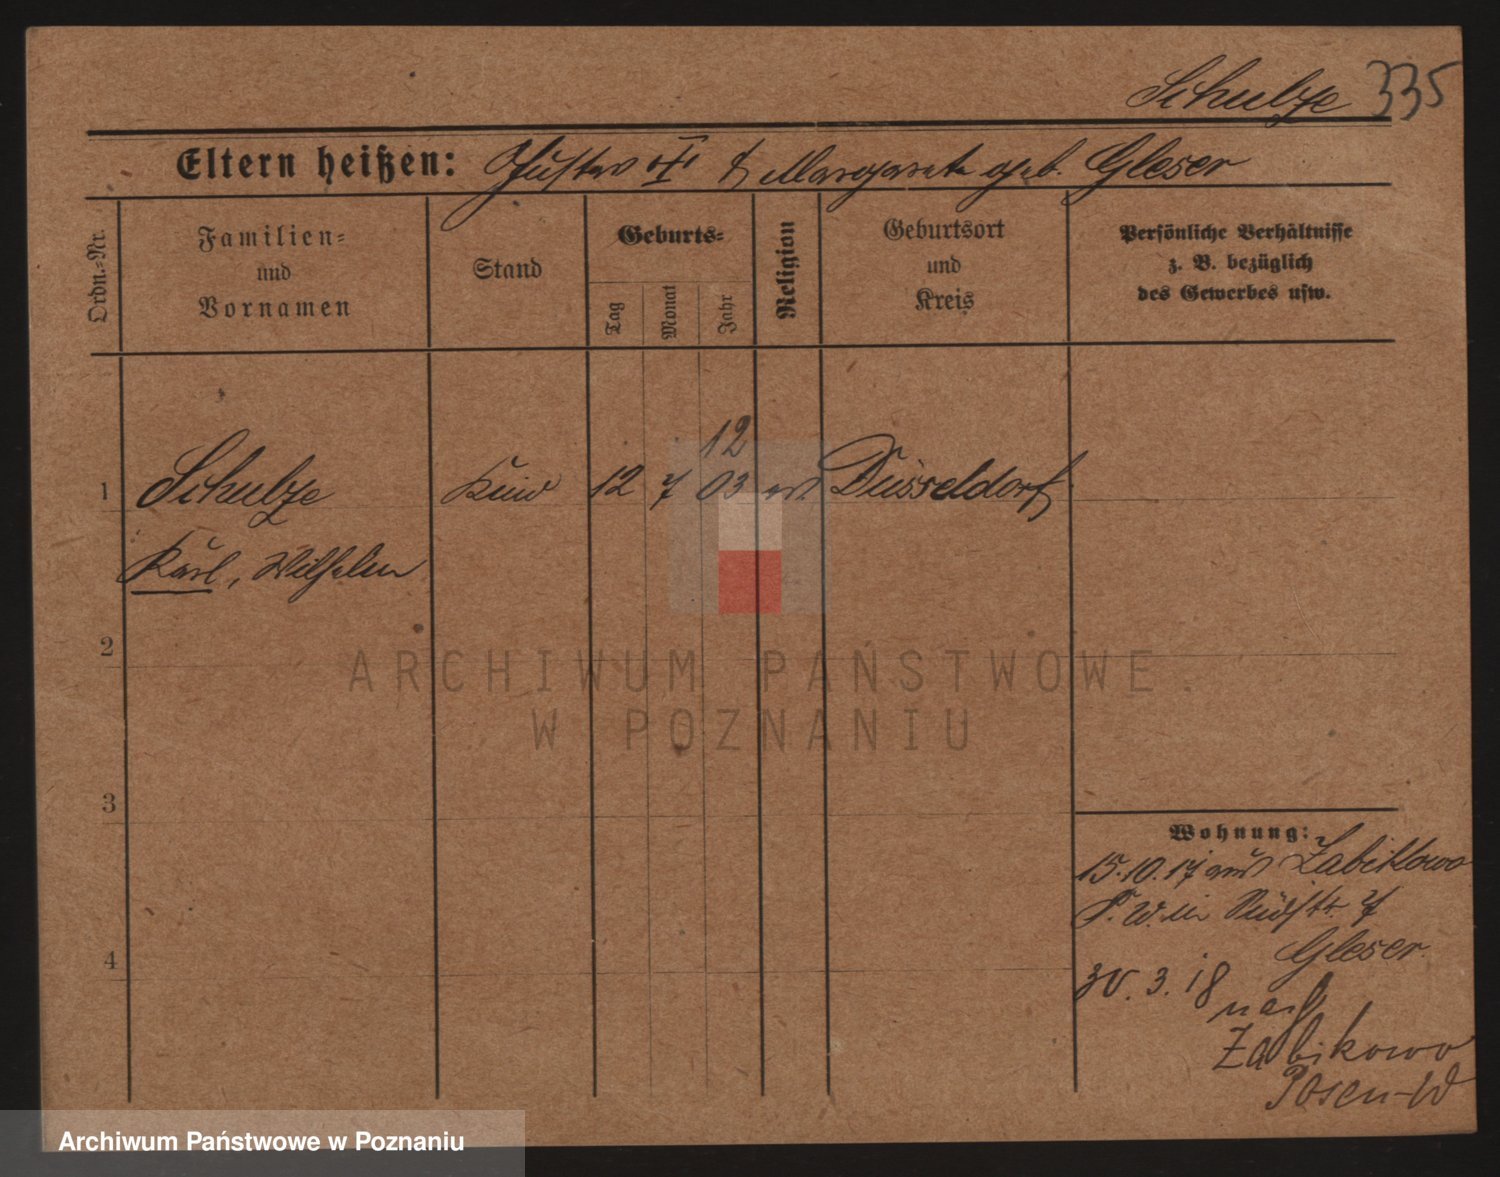 Schulze 335
Eltern heißen: Gustav & Margarete geb. Gleser
Ordn.-Nr.
Familien- und Vornamen
Stand
Geburts-
Tag
Monat
Jahr
Religion
Geburtsort und Kreis
Persönliche Verhältnisse z. B. bezüglich des Gewerbes usw.
12
1 Schulze Kind 12 7 03 ev Düsseldorf
Karl, Wilhelm
2
3
4
Wohnung:
15.10.17 aus Zabikowo
P. W. in 7
Gleser
30.3.18 nach
Zabikowo
Posen-W
ARCHIWUM PAŃSTWOWE
W POZNANIU
Archiwum Państwowe w Poznaniu